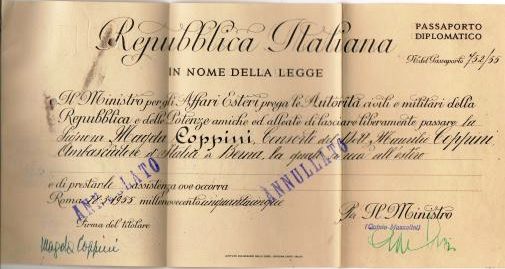 Repubblica Italiana
PASSAPORTO
DIPLOMATICO
N. del Passaporto 752/55
IN NOME DELLA LEGGE
Il Ministro per gli Affari Esteri prega le Autorità civili e militari della
Repubblica e delle Potenze amiche ed alleate di lasciare liberamente passare la
Signora Magda Coppini, Consorte del Dott. Maurilio Coppini,
Ambasciatore d'Italia a Berna, la quale si reca all'estero
e di prestarle assistenza ove occorra
ANNULLATO
ANNULLATO
Roma 1955 millenovecentocinquantacinque
Firma del titolare
Magda Coppini
Pa Il Ministro